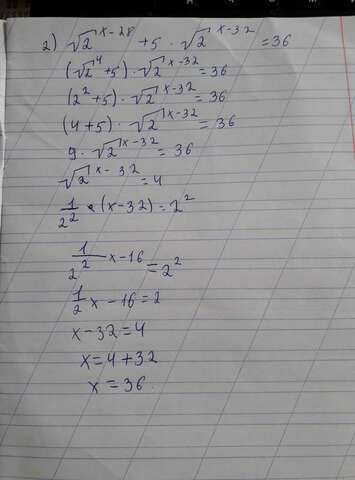 2) √2^(x-28) + 5 · √2^(x-32) = 36
(√2^4 + 5) · √2^(x-32) = 36
(2^2 + 5) · √2^(x-32) = 36
(4 + 5) · √2^(x-32) = 36
9 · √2^(x-32) = 36
√2^(x-32) = 4
2^(1/2 · (x-32)) = 2^2
2^(1/2 x - 16) = 2^2
1/2 x - 16 = 2
x - 32 = 4
x = 4 + 32
x = 36